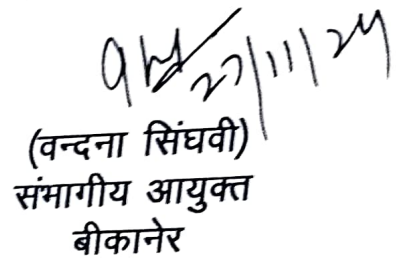 27/11/24
(वन्दना सिंघवी)
संभागीय आयुक्त
बीकानेर